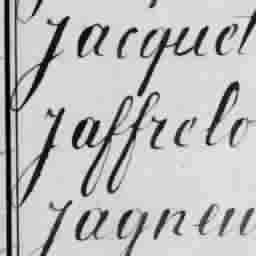 Jacquet
Jaffrelo
Jagneu